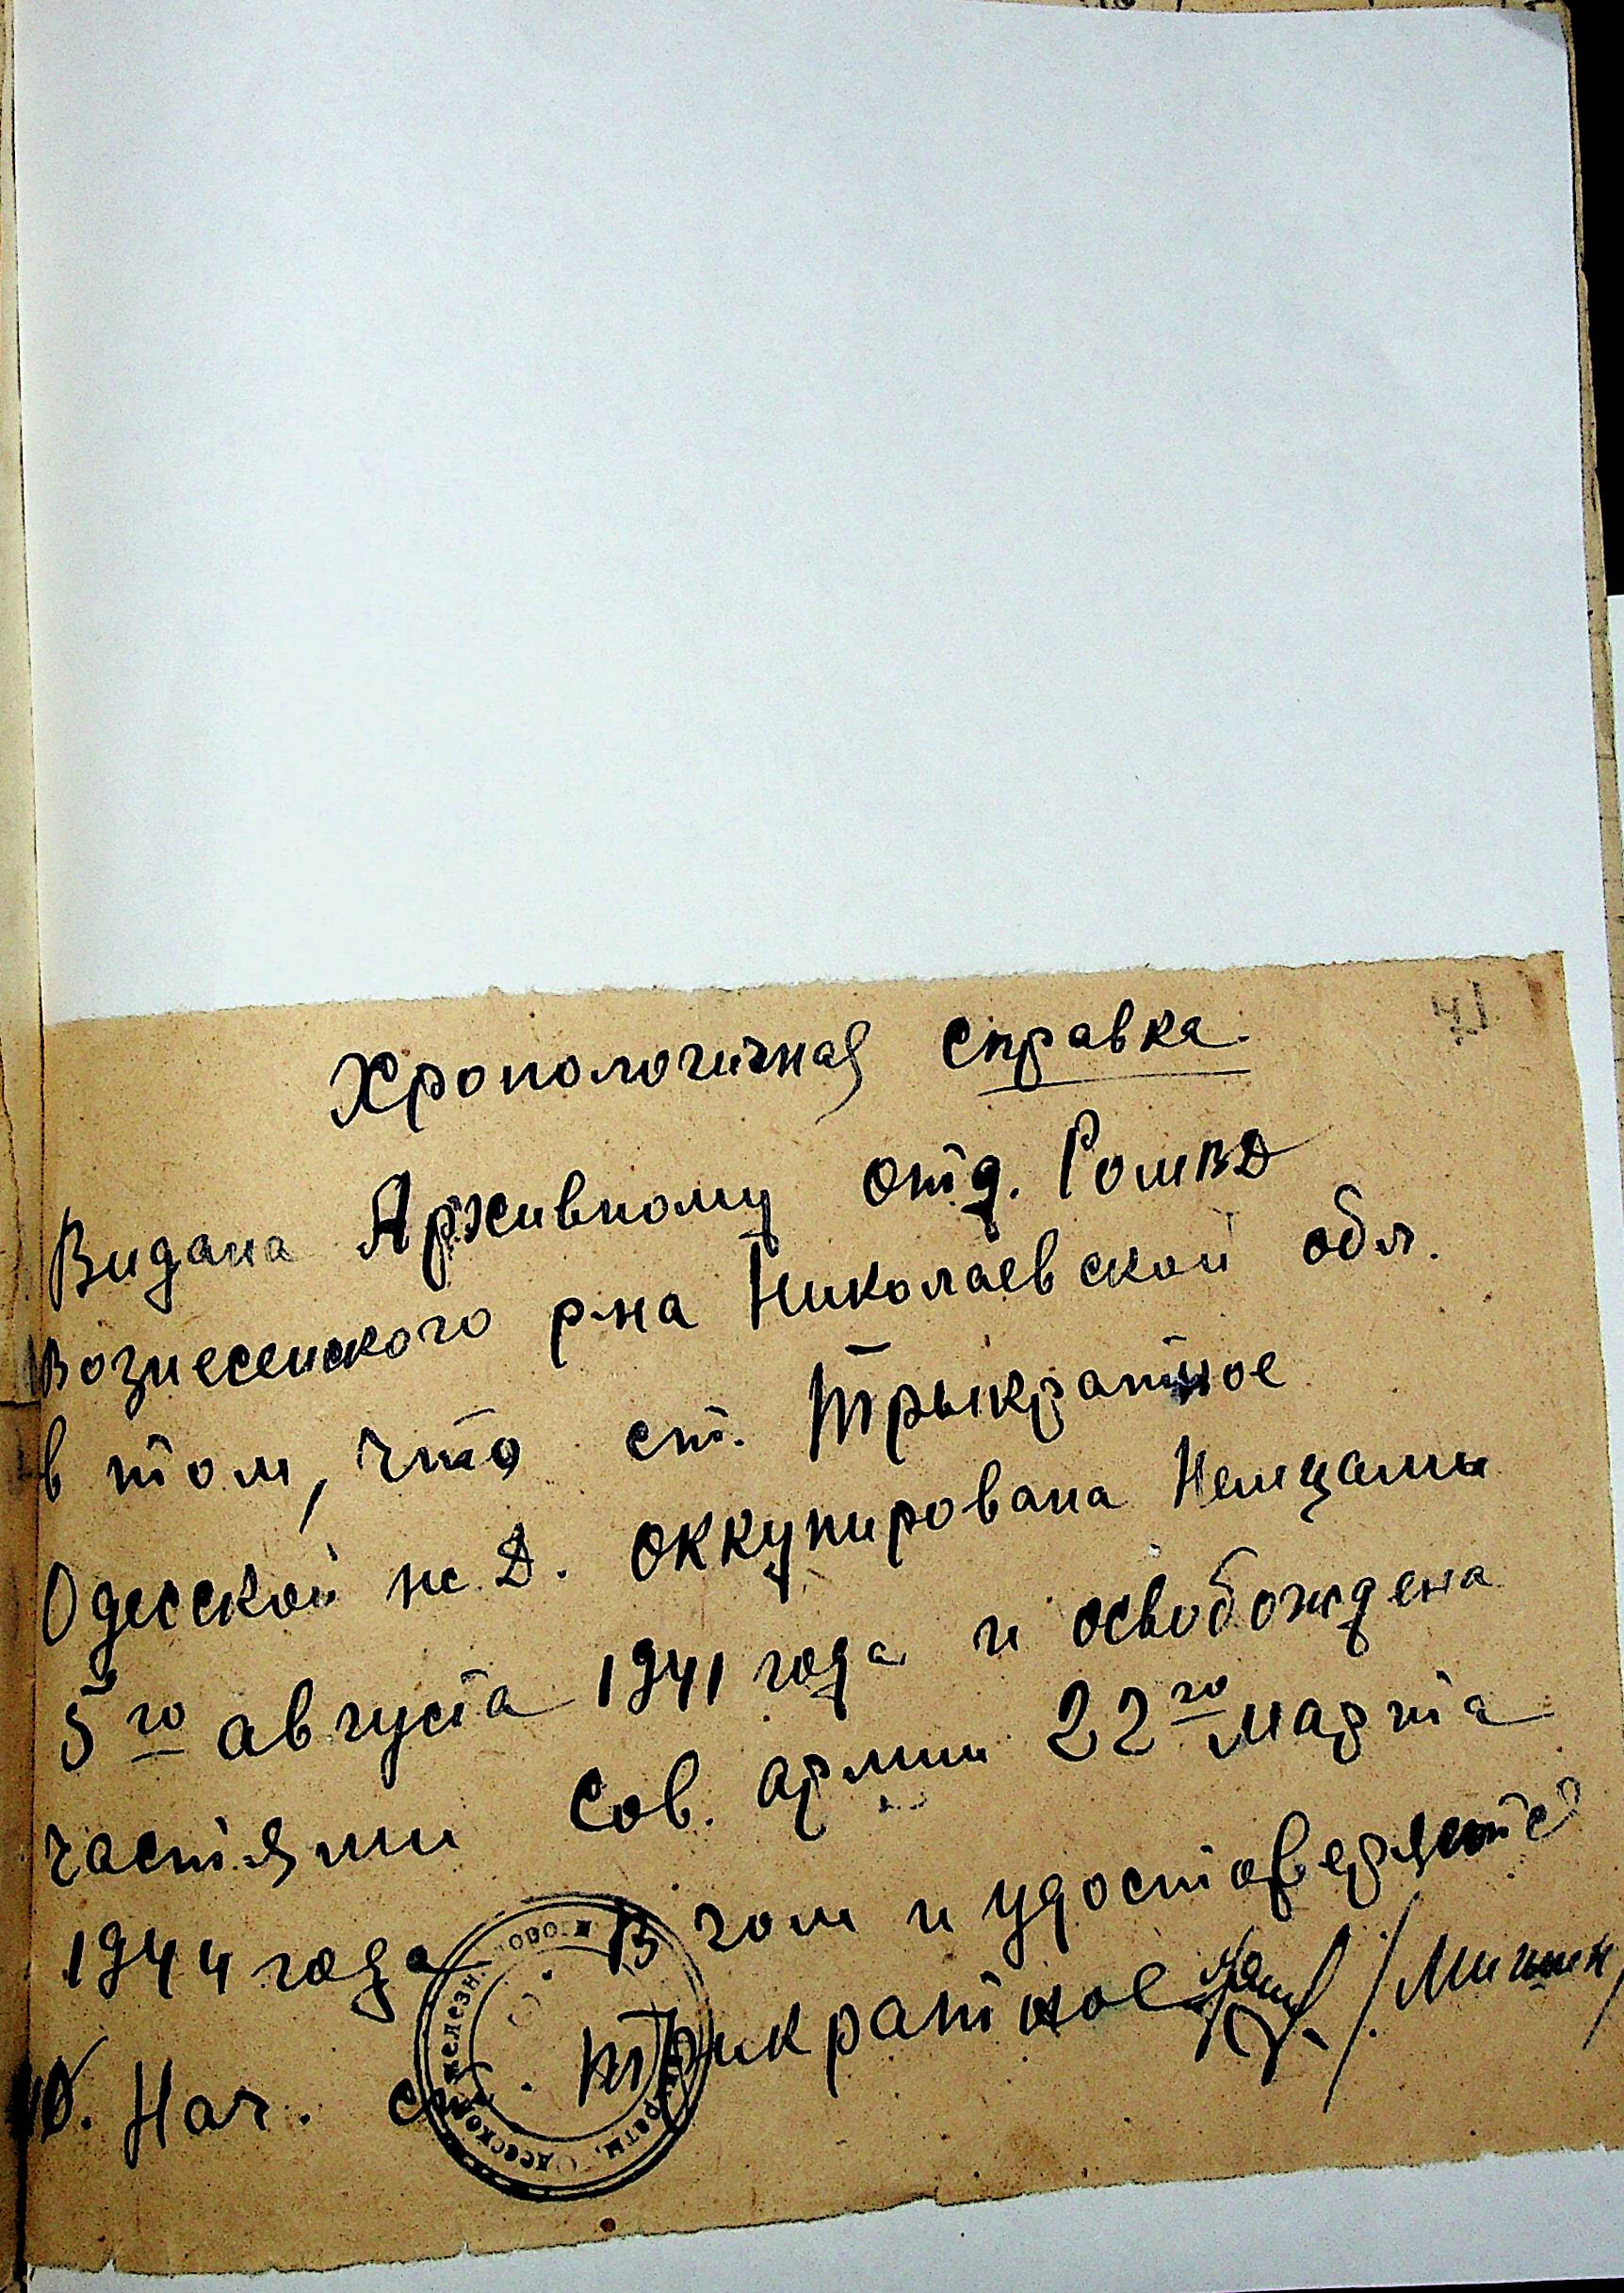 41
Хронологичная справка.
Видана Архивному отд. РОМВД
Вознесенского р-на Николаевской обл.
в том, что ст. Трыкратное
Одесской ж.д. оккупирована Немцами
5го августа 1941 года и освобождена
частями Сов. армии 22го марта
1944 года В чом и удостоверяется
Нач. ст. Трикратное /Минин/
Одесской железн. дороги